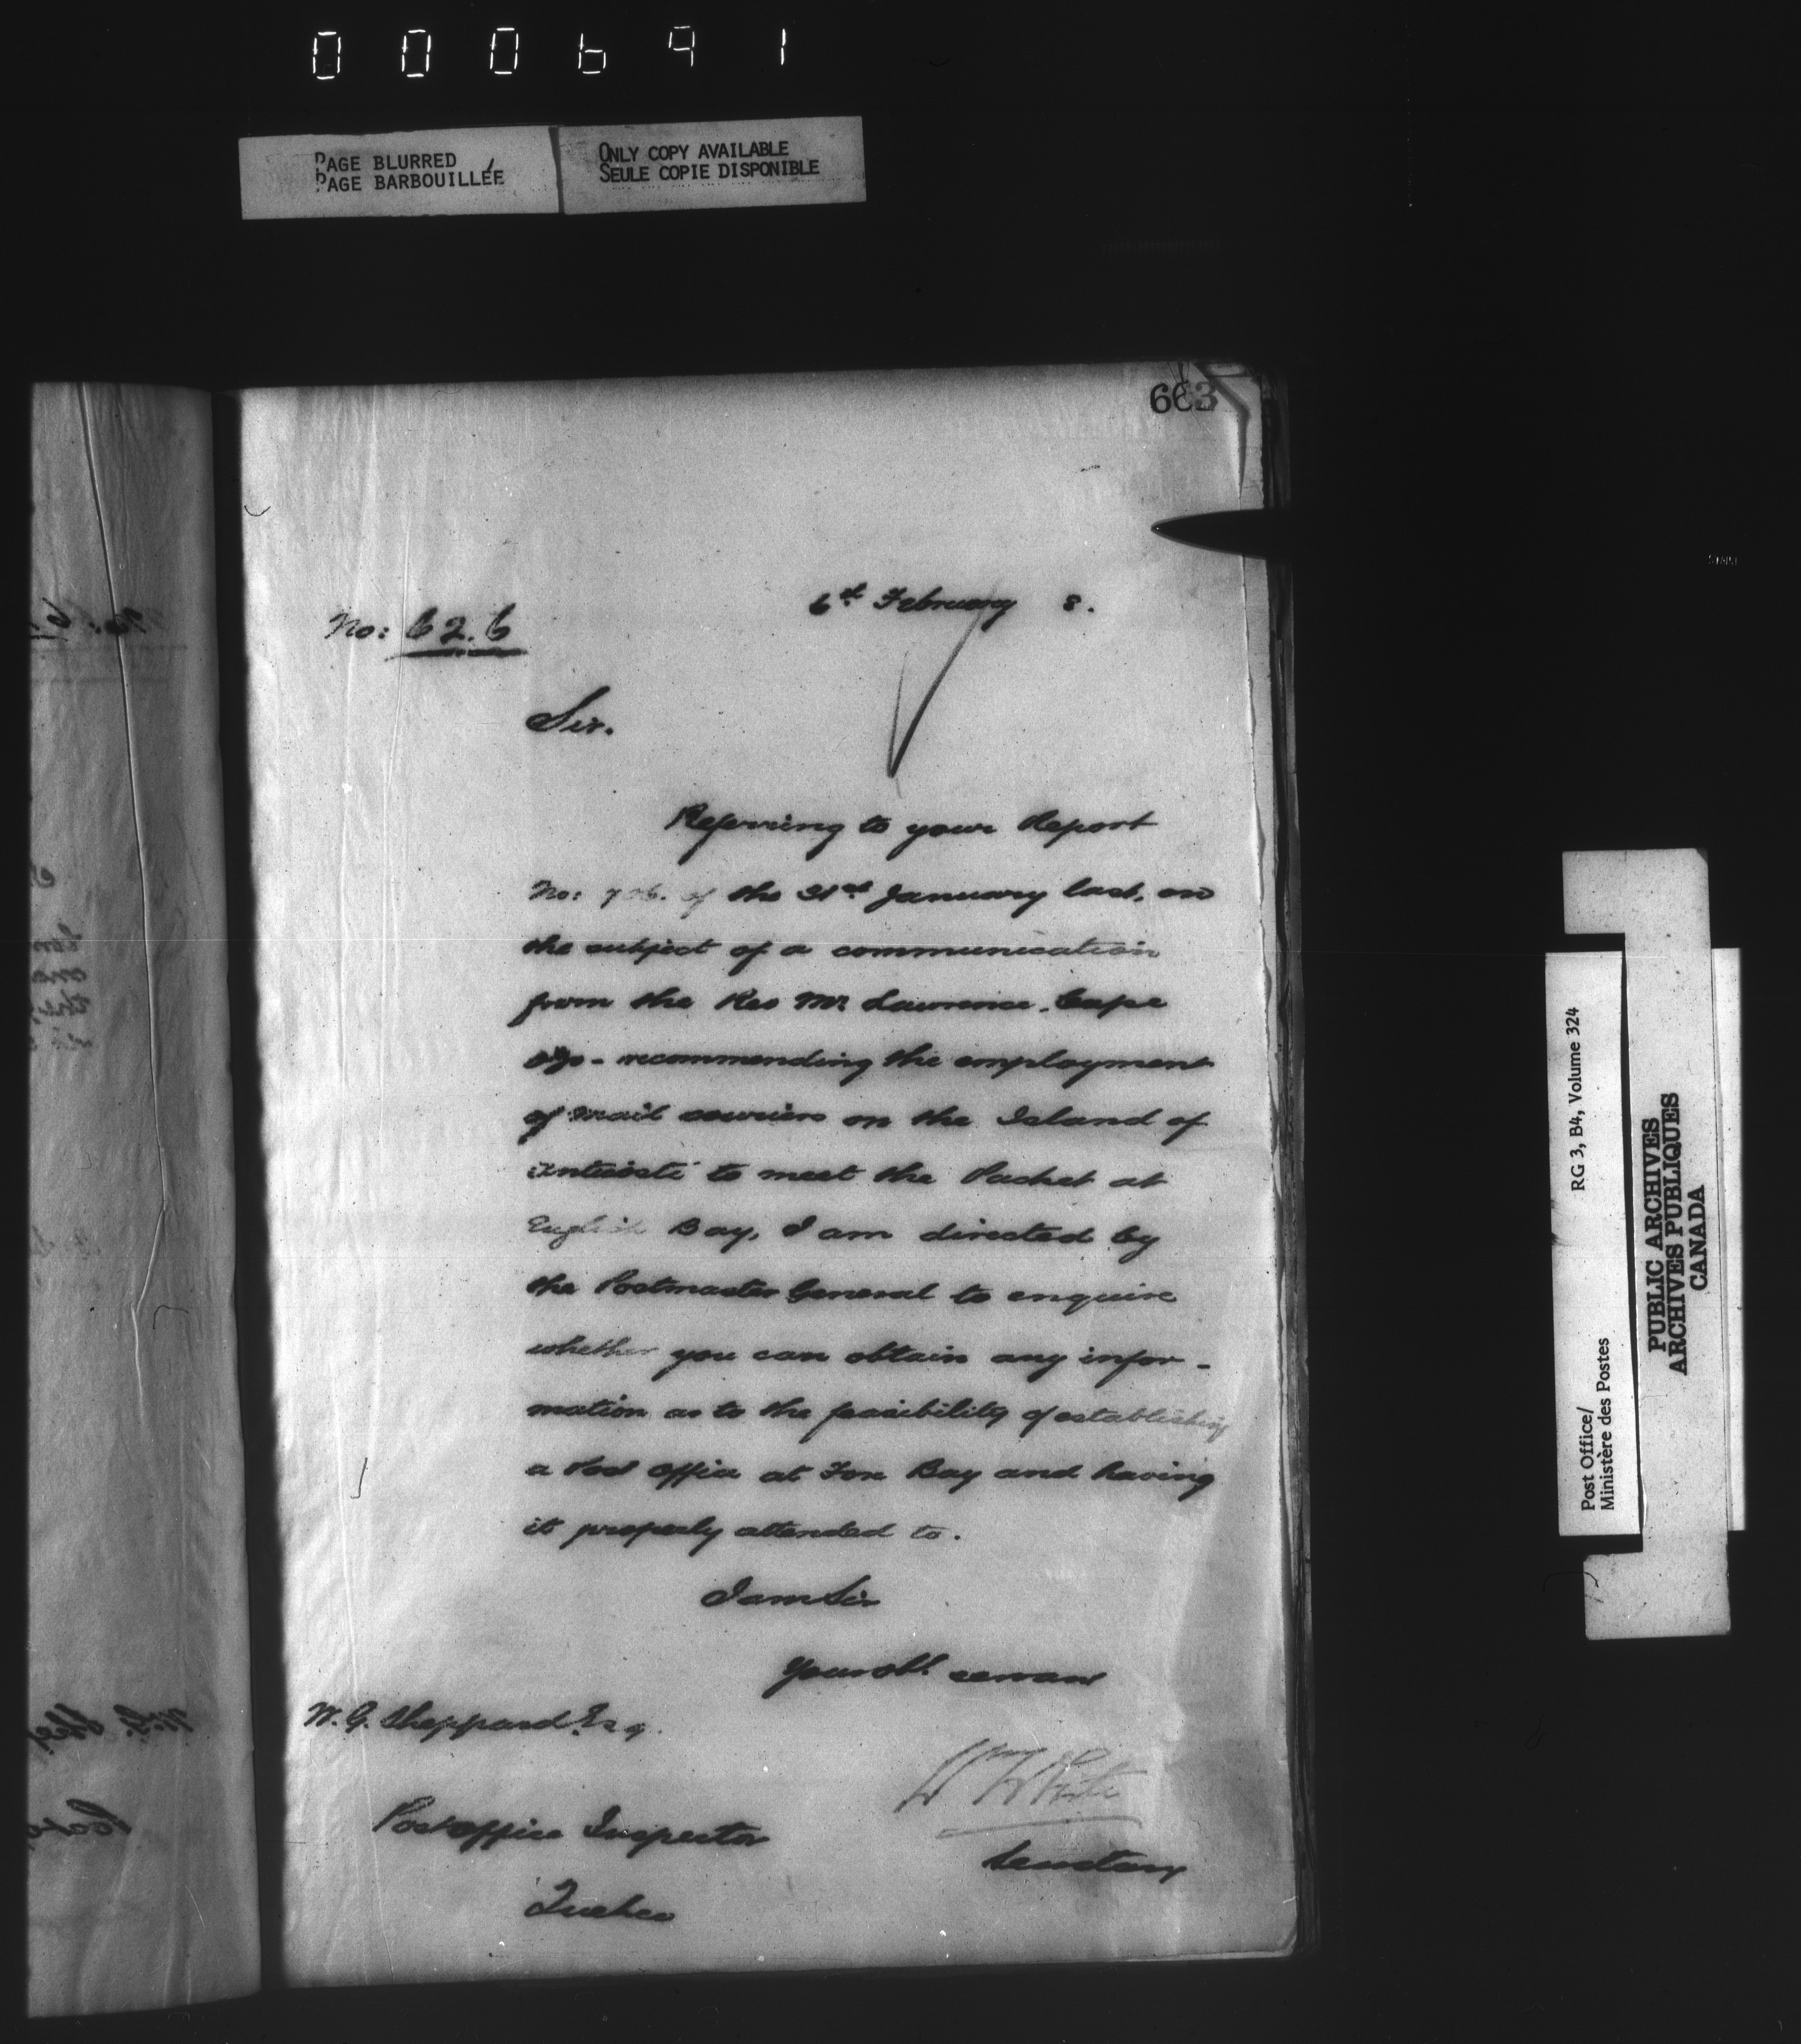 000691
PAGE BLURRED
PAGE BARBOUILLÉE
ONLY COPY AVAILABLE
SEULE COPIE DISPONIBLE
663
6th February 8.
No: 626
Sir.
Referring to your Report
No: of the 31st January last, on
the subject of a communication
from the Rev Mr Lawrence. Cape
recommending the employment
of Mail couriers on the Island of
Anticosti to meet the Packet at
English Bay, I am directed by
the Postmaster General to enquire
whether you can obtain any infor-
mation as to the feasibility of establishing
a Post Office at Fox Bay and having
it properly attended to.
I am Sir
Your obt. servant
W. G. Sheppard Esq.
Wm White
Post Office Inspector
Secretary
Quebec
Post Office/
Ministère des Postes
RG 3, B4, Volume 324
PUBLIC ARCHIVES
ARCHIVES PUBLIQUES
CANADA